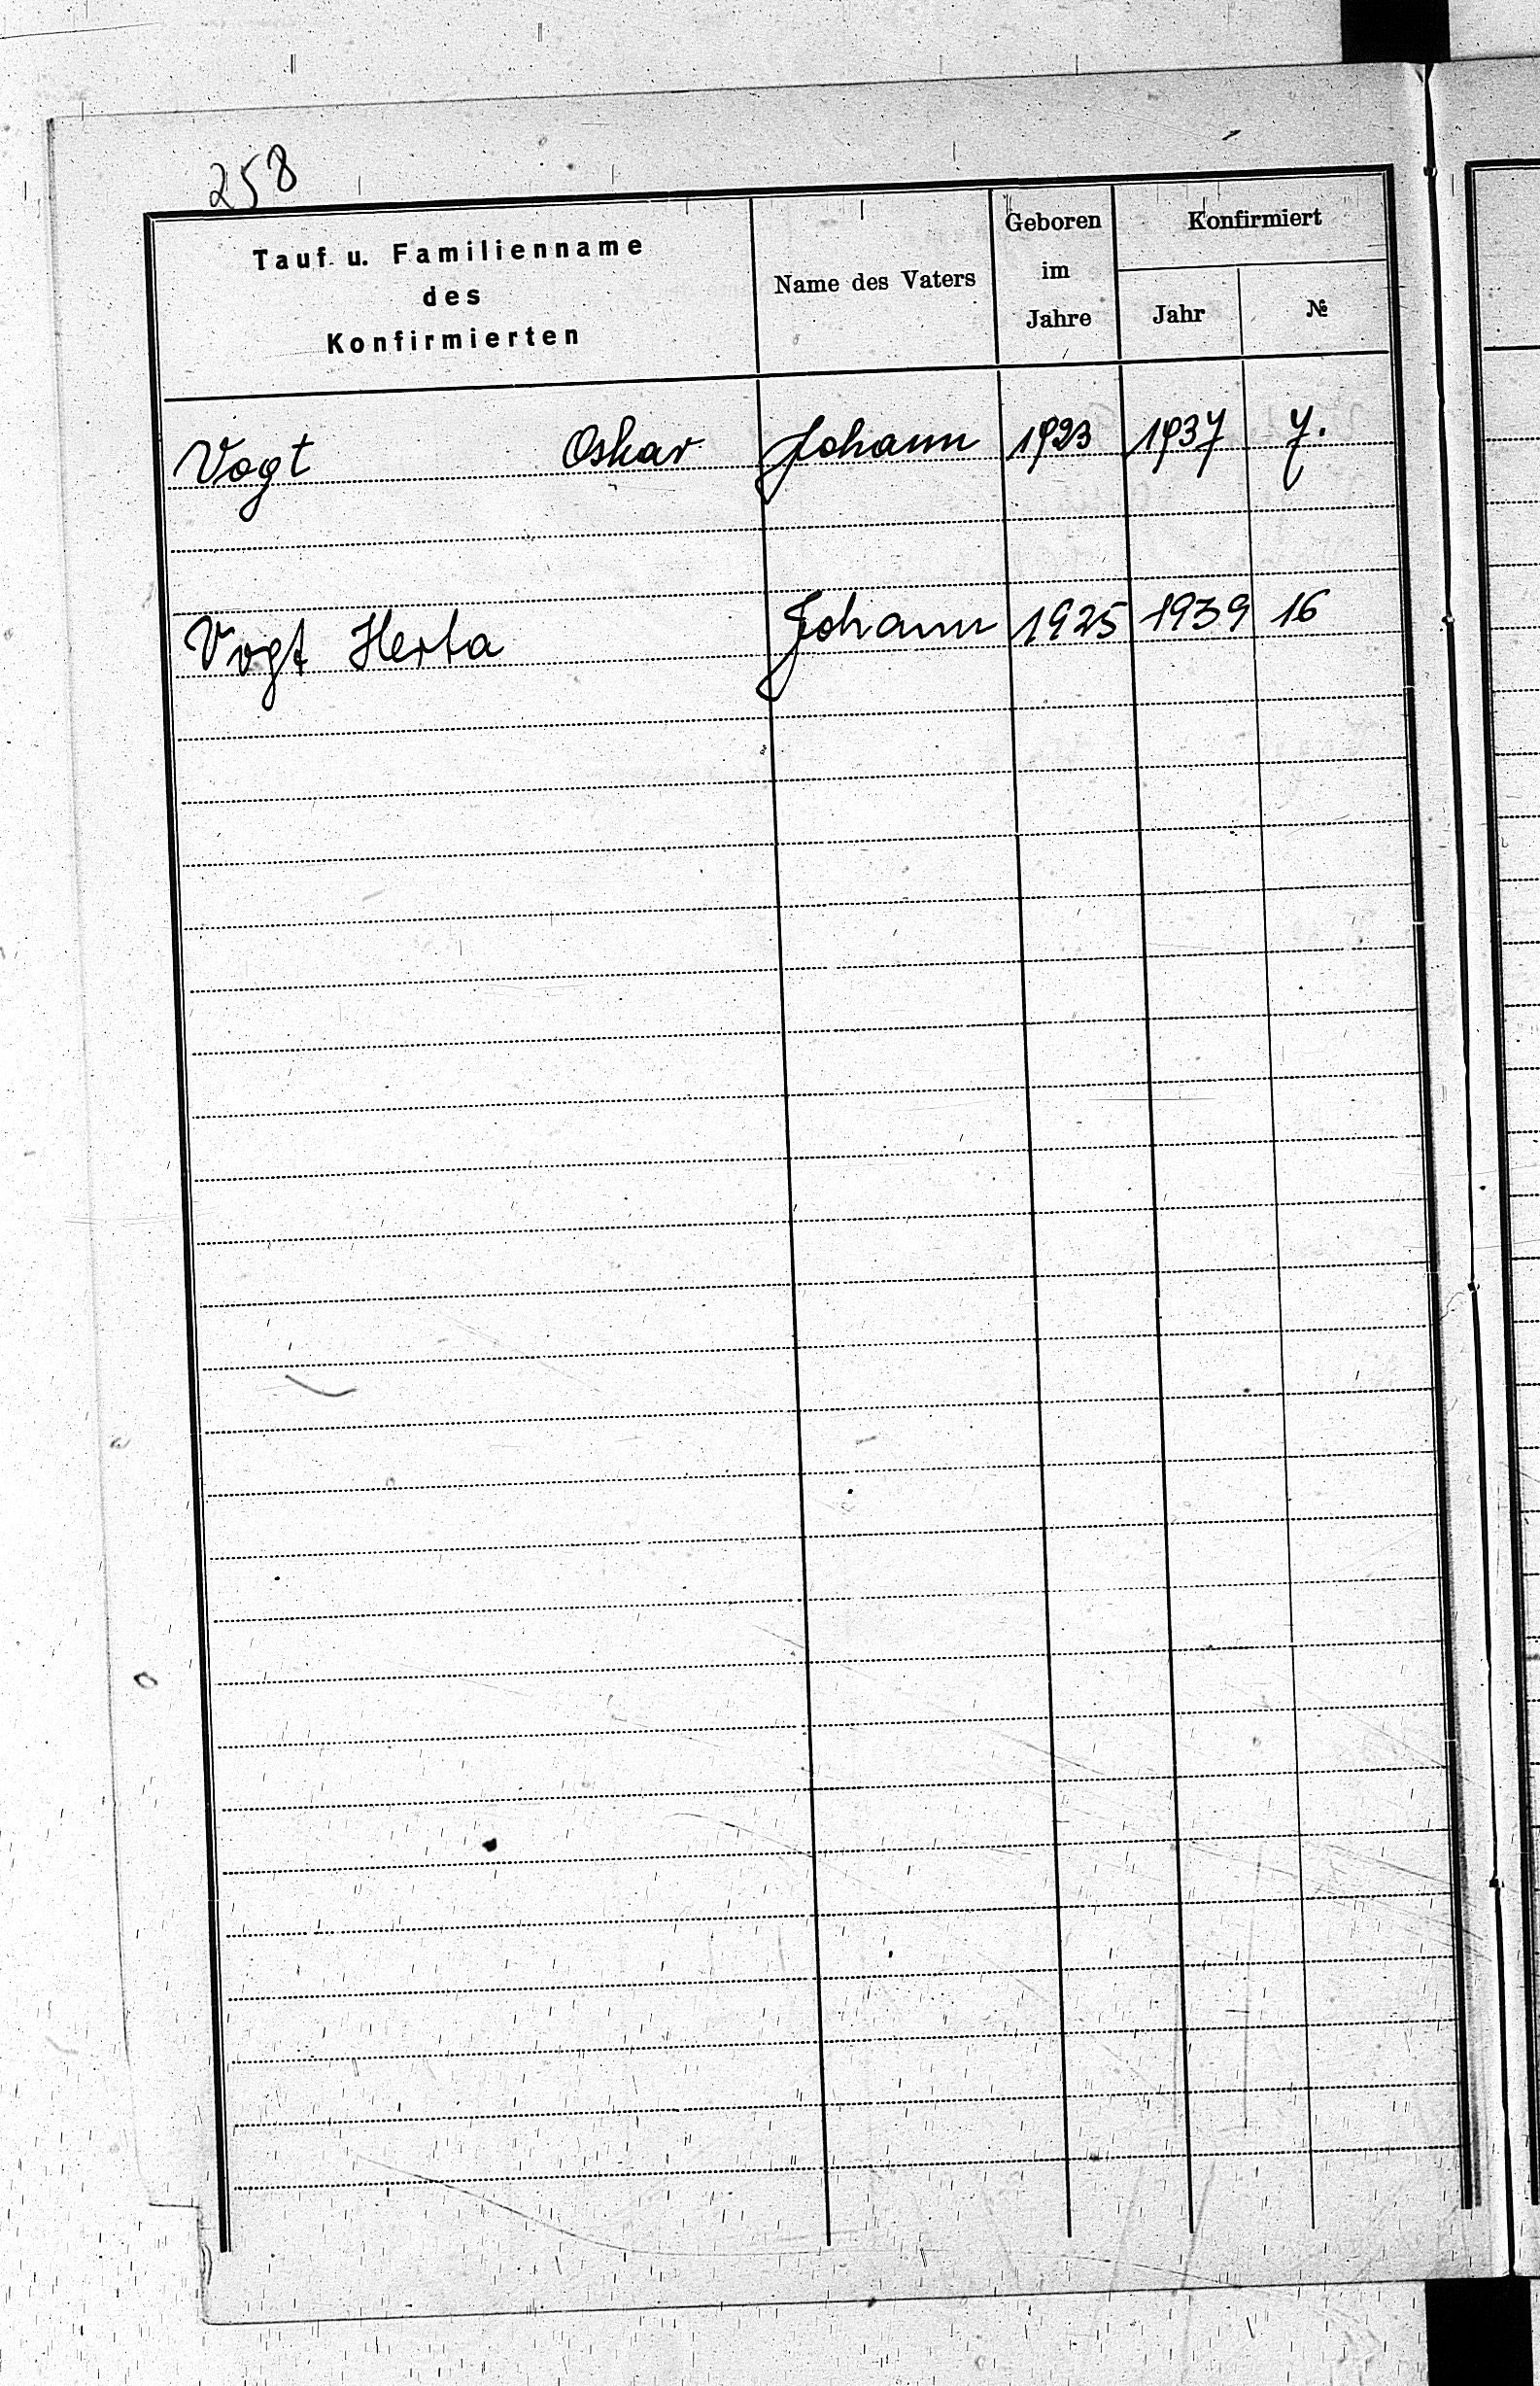 258
Tauf- u. Familienname
des
Konfirmierten
Name des Vaters
Geboren
im
Jahre
Konfirmiert
Jahr
№
Vogt Oskar Johann 1923 1937 7.
Vogt Herta Johann 1925 1939 16